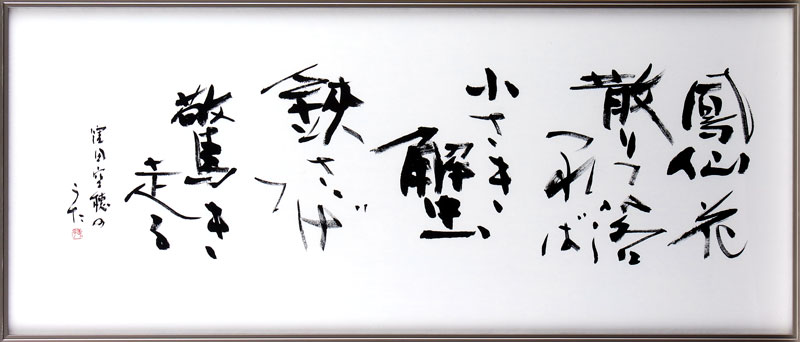 鳳仙花
散りて落
つれば
小さき
蟹
鋏さゝげ
つ
驚き
走る
窪田空穂の
うた